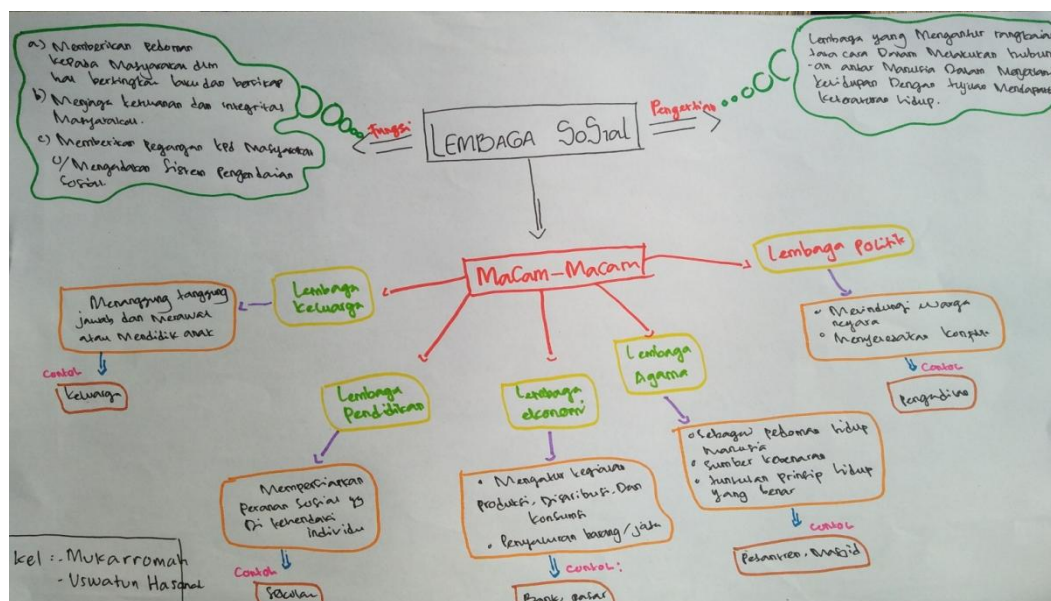 a) Memberikan pedoman
kepada Masyarakat dlm
hal bertingkah laku dan bersikap
b) Menjaga keutuhan dan integritas
Masyarakat.
c) Memberikan pegangan kpd Masyarakat
u/ Mengadakan Sistem Pengendalian
Sosial.
Fungsi
LEMBAGA SoSial
Pengertian
Lembaga yang Mengantur rangkaian
tata cara Dalam Melakukan hubun
-an antar Manusia Dalam Menjalan
kehidupan Dengan tujuan Mendapat
keteraturan hidup.
MaCam-MaCam
Lembaga
keluarga
Menanggung tanggung
jawab dan Merawat
atau Mendidik anak
Contoh
keluarga
Lembaga
Pendidikan
Mempersiapkan
peranan Sosial yg
Di kehendaki
Individu
Contoh
Sekolah
Lembaga
ekonomi
• Mengatur kegiatan
produksi, Distribusi, Dan
konsumsi
• Penyaluran barang/jasa
Contoh:
Bank, pasar
Lembaga
Agama
• Sebagai pedoman hidup
Manusia
• Sumber kebenaran
• tuntutan prinsip hidup
yang benar
Contoh
Pesantren, Masjid
Lembaga politik
• Melindungi warga
negara
• Menyelesaikan konflik
Contoh
Pengadilan
kel : - Mukarromah
- Uswatun Hasanah